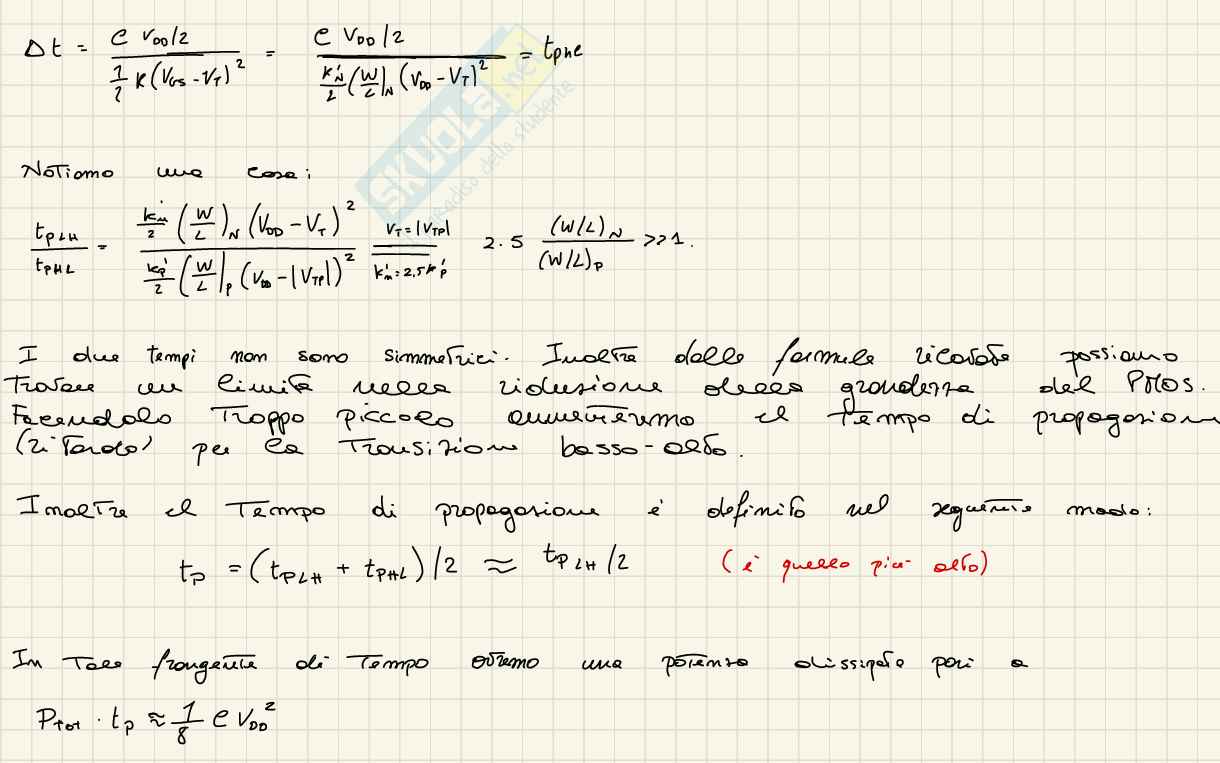 Δt = (C V_DD/2) / (1/2 K (V_GS - V_T)^2) = (C V_DD/2) / (k'_N/2 (W/L)_N (V_DD - V_T)^2) = t_PHL
SKUOLA.net
paradiso dello studente
Notiamo una cosa:
t_PLH / t_PHL = (k'_n/2 (W/L)_N (V_DD - V_T)^2) / (k'_p/2 (W/L)_P (V_DD - |V_TP|)^2) = (V_T = |V_TP|, k'_n = 2,5 k'_p) 2.5 (W/L)_N / (W/L)_P >> 1.
I due tempi non sono simmetrici. Inoltre dalle formule ricavate possiamo
trovare un limite nella riduzione della grandezza del PMOS.
Facendolo troppo piccolo aumenteremo il tempo di propagazione
(ritardo) per la transizione basso-alto.
Inoltre il tempo di propagazione è definito nel seguente modo:
t_P = (t_PLH + t_PHL)/2 ≈ t_PLH/2 (è quello più alto)
In tale frangente di tempo avremo una potenza dissipata pari a
P_tot · t_P ≈ 1/8 C V_DD^2